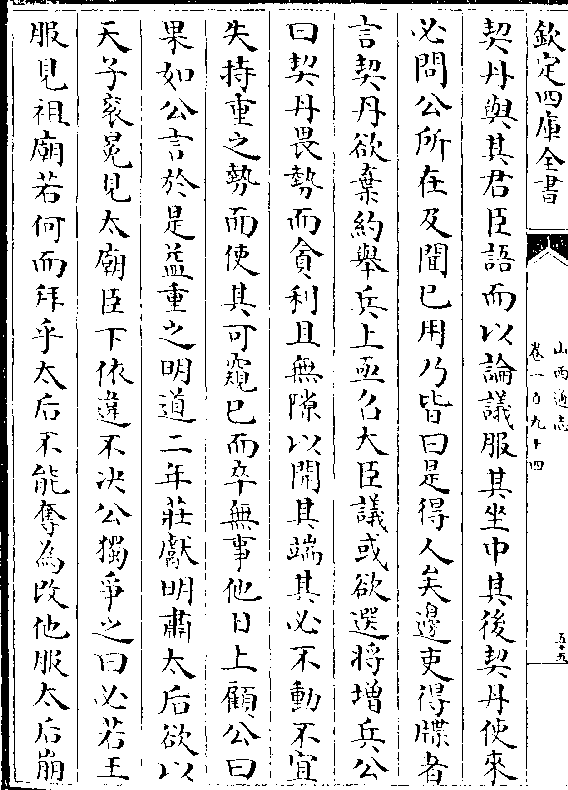 欽定四庫全書
山西通志
卷一百九十四
五十五
契丹與其君臣語而以論議服其坐中其後契丹使來
必問公所在及聞已用乃皆曰是得人矣邊吏得牒者
言契丹欲棄約舉兵上亟召大臣議或欲選將増兵公
曰契丹畏勢而貪利且無隙以開其端其必不動不宜
失持重之勢而使其可窺已而卒無事他日上顧公曰
果如公言於是益重之明道二年莊獻明肅太后欲以
天子衮冕見太廟臣下依違不决公獨爭之曰必若王
服見祖廟若何而拜乎太后不能奪為改他服太后崩